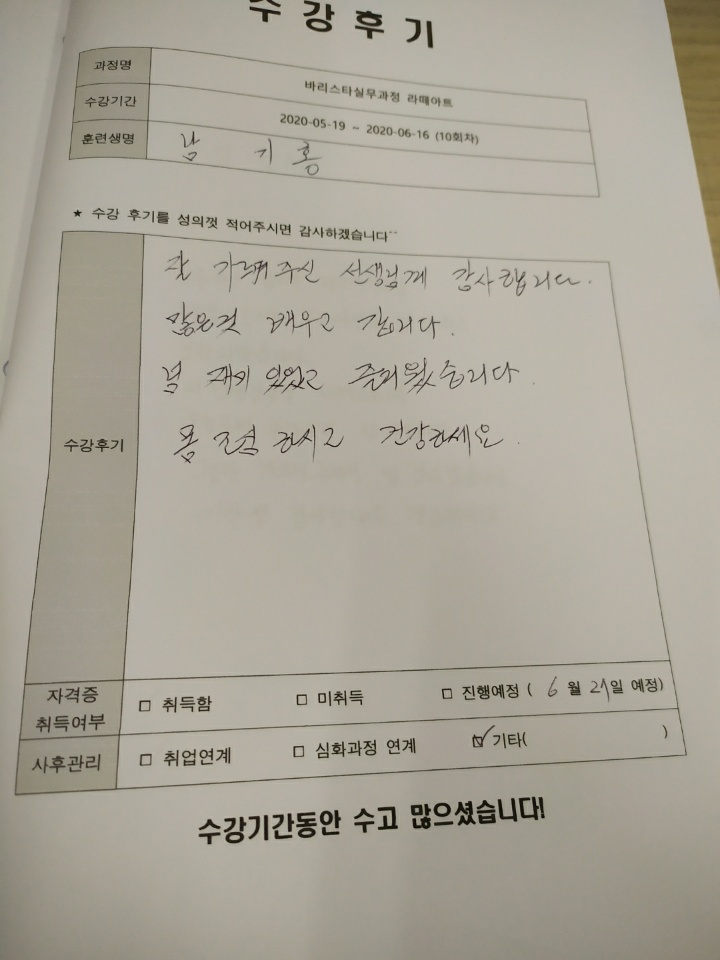 수강후기
과정명 바리스타실무과정 라떼아트
수강기간 2020-05-19 ~ 2020-06-16 (10회차)
훈련생명 남 기 홍
★ 수강 후기를 성의껏 적어주시면 감사하겠습니다^^
잘 가르쳐주신 선생님께 감사합니다.
많은것 배우고 갑니다.
넘 재미 있었고 즐거웠습니다.
몸 조심 하시고 건강하세요.
수강후기
자격증 취득여부 □ 취득함 □ 미취득 □ 진행예정 ( 6 월 21일 예정)
사후관리 □ 취업연계 □ 심화과정 연계 ☑ 기타( )
수강기간동안 수고 많으셨습니다!